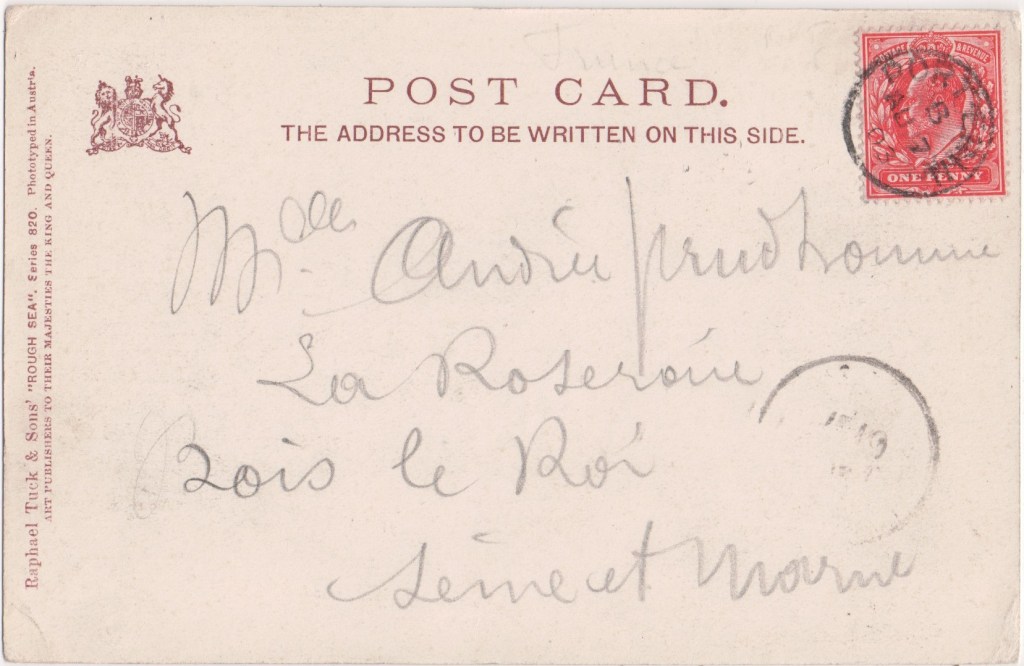 France
POST CARD.
THE ADDRESS TO BE WRITTEN ON THIS SIDE.
Raphael Tuck & Sons' "ROUGH SEA". Series 820. Phototyped in Austria.
ART PUBLISHERS TO THEIR MAJESTIES THE KING AND QUEEN.
& REVENUE
ONE PENNY
B
AU 7
Mdlle Andrée Prudhomme
La Roseraie
Bois le Roi
Seine et Marne